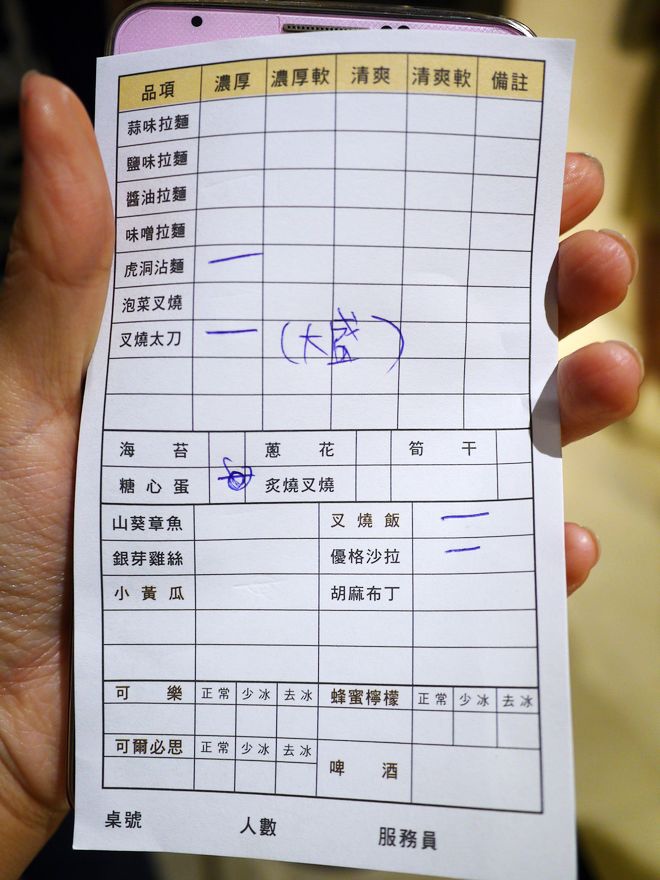 品項 濃厚 濃厚軟 清爽 清爽軟 備註
蒜味拉麵
鹽味拉麵
醬油拉麵
味噌拉麵
虎洞沾麵 一
泡菜叉燒
叉燒太刀 一 (大盛)
海苔 蔥花 筍干
糖心蛋 炙燒叉燒
山葵章魚 叉燒飯 一
銀芽雞絲 優格沙拉 一
小黃瓜 胡麻布丁
可樂 正常 少冰 去冰 蜂蜜檸檬 正常 少冰 去冰
可爾必思 正常 少冰 去冰 啤酒
桌號 人數 服務員